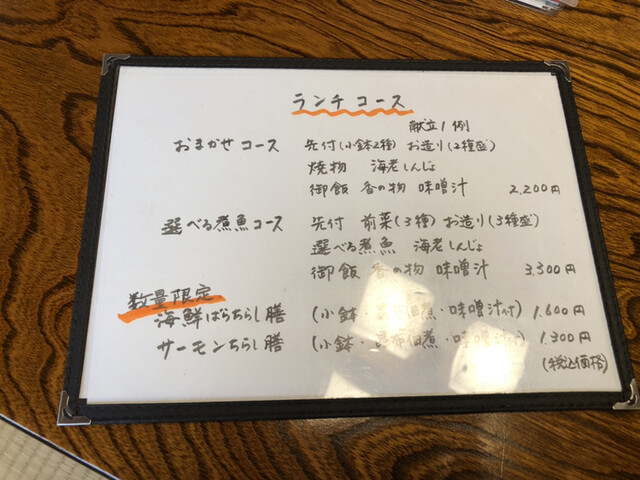 ランチコース
献立1例
おまかせコース 先付(小鉢2種) お造り(2種盛)
焼物 海老しんじょ
御飯 香の物 味噌汁 2,200円
選べる煮魚コース 先付 前菜(3種) お造り(3種盛)
選べる煮魚 海老しんじょ
御飯 香の物 味噌汁 3,300円
数量限定
海鮮ばらちらし膳 (小鉢・昆布佃煮・味噌汁付) 1,600円
サーモンちらし膳 (小鉢・昆布佃煮・味噌汁付) 1,300円
(税込価格)